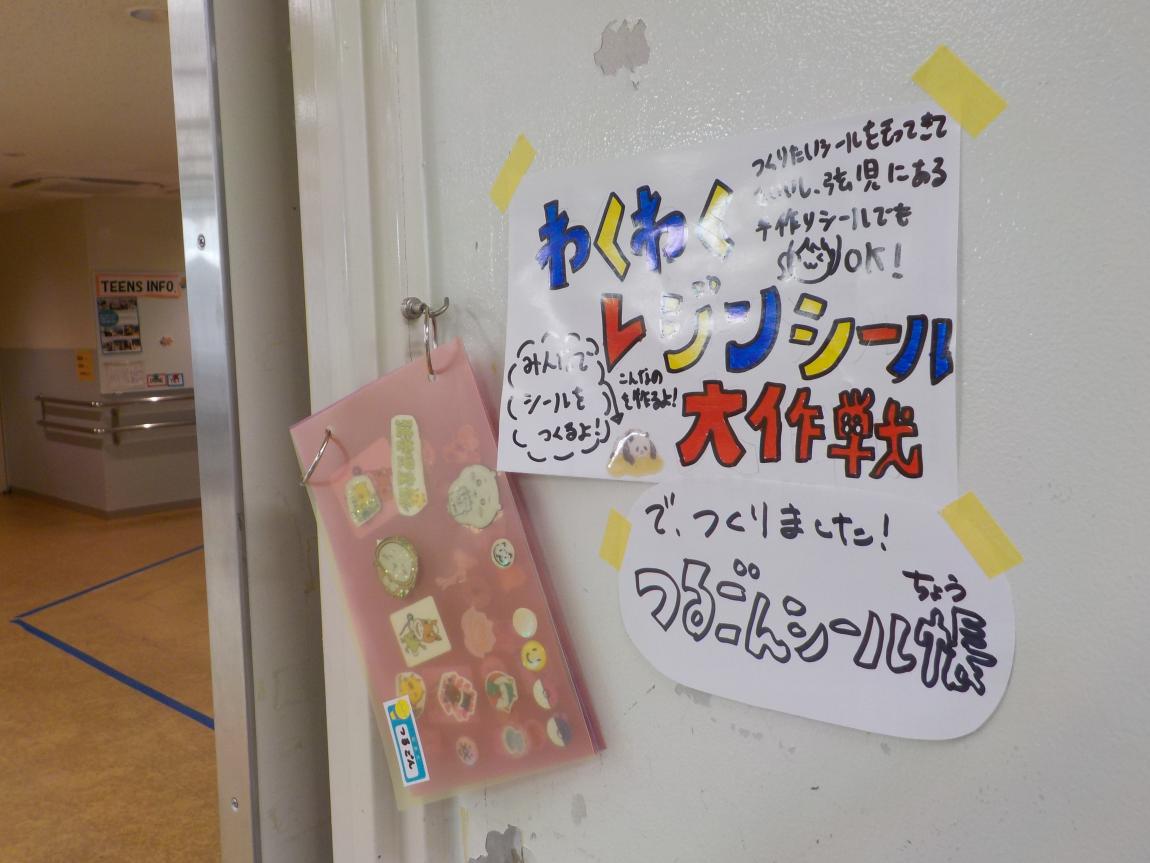 TEENS INFO.
つくりたいシールをもってきて
もいいし、弦児にある
手作りシールでも
OK!
わくわく
レジンシール
大作戦
みんなで
シールを
つくるよ!
こんなの
を作るよ!
で、つくりました!
ちょう
つるごんシール帳
つるごん